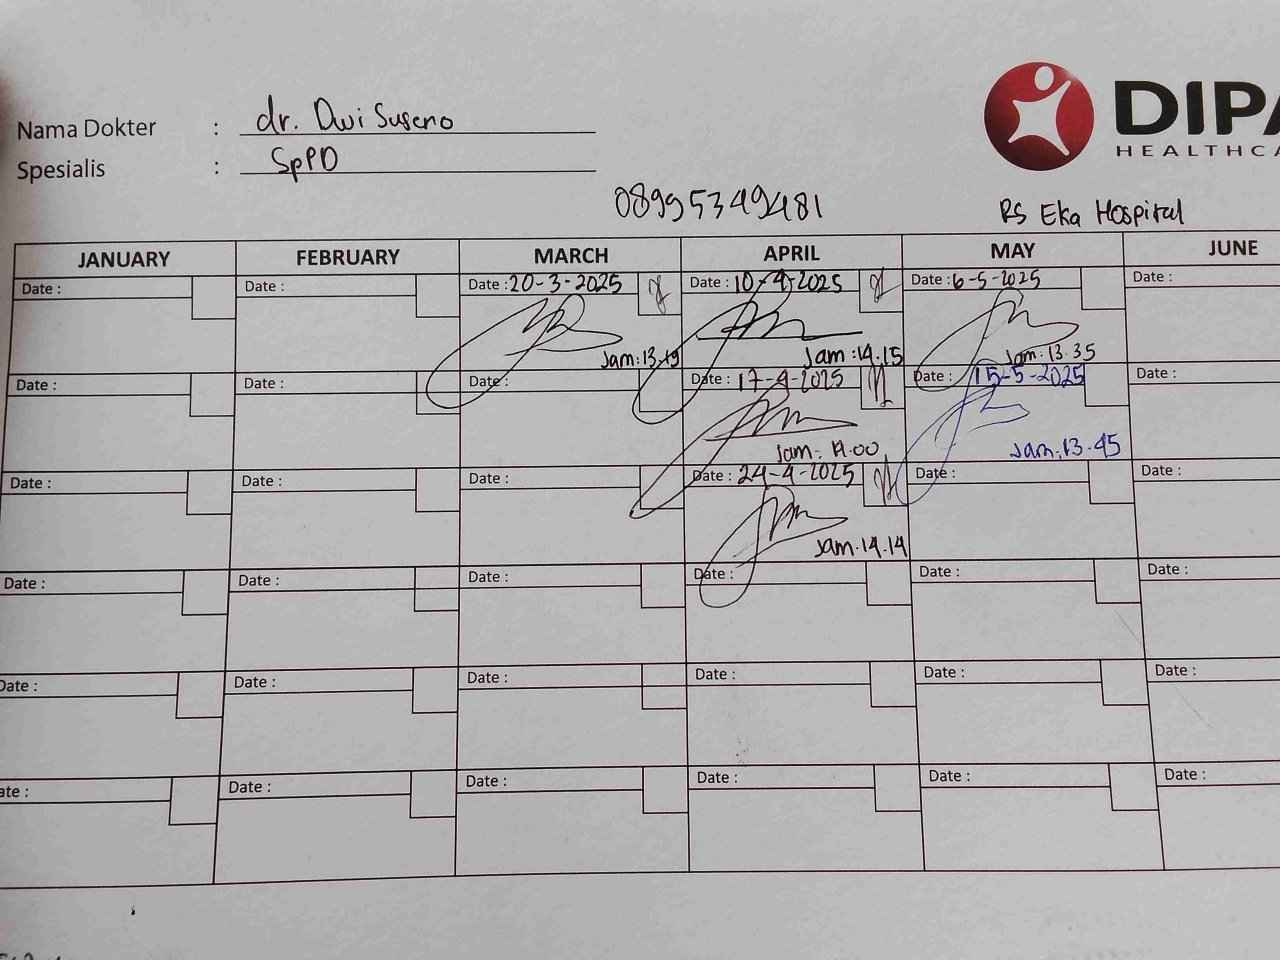 Nama Dokter : dr. Dwi Suseno
Spesialis : SpPD
DIPA
HEALTHCA
08995349481
RS Eka Hospital
JANUARY FEBRUARY MARCH APRIL MAY JUNE
Date : Date : Date : 20-3-2025 Date : 10-4-2025 Date : 6-5-2025 Date :
Jam: 13.19 Jam : 14.15 Jam: 13.35
Date : Date : Date : Date : 17-4-2025 Date : 15-5-2025 Date :
Jam: 14.00 Jam: 13.45
Date : Date : Date : Date : 24-4-2025 Date : Date :
Jam. 14.14
Date : Date : Date : Date : Date : Date :
Date : Date : Date : Date : Date : Date :
ate : Date : Date : Date : Date : Date :